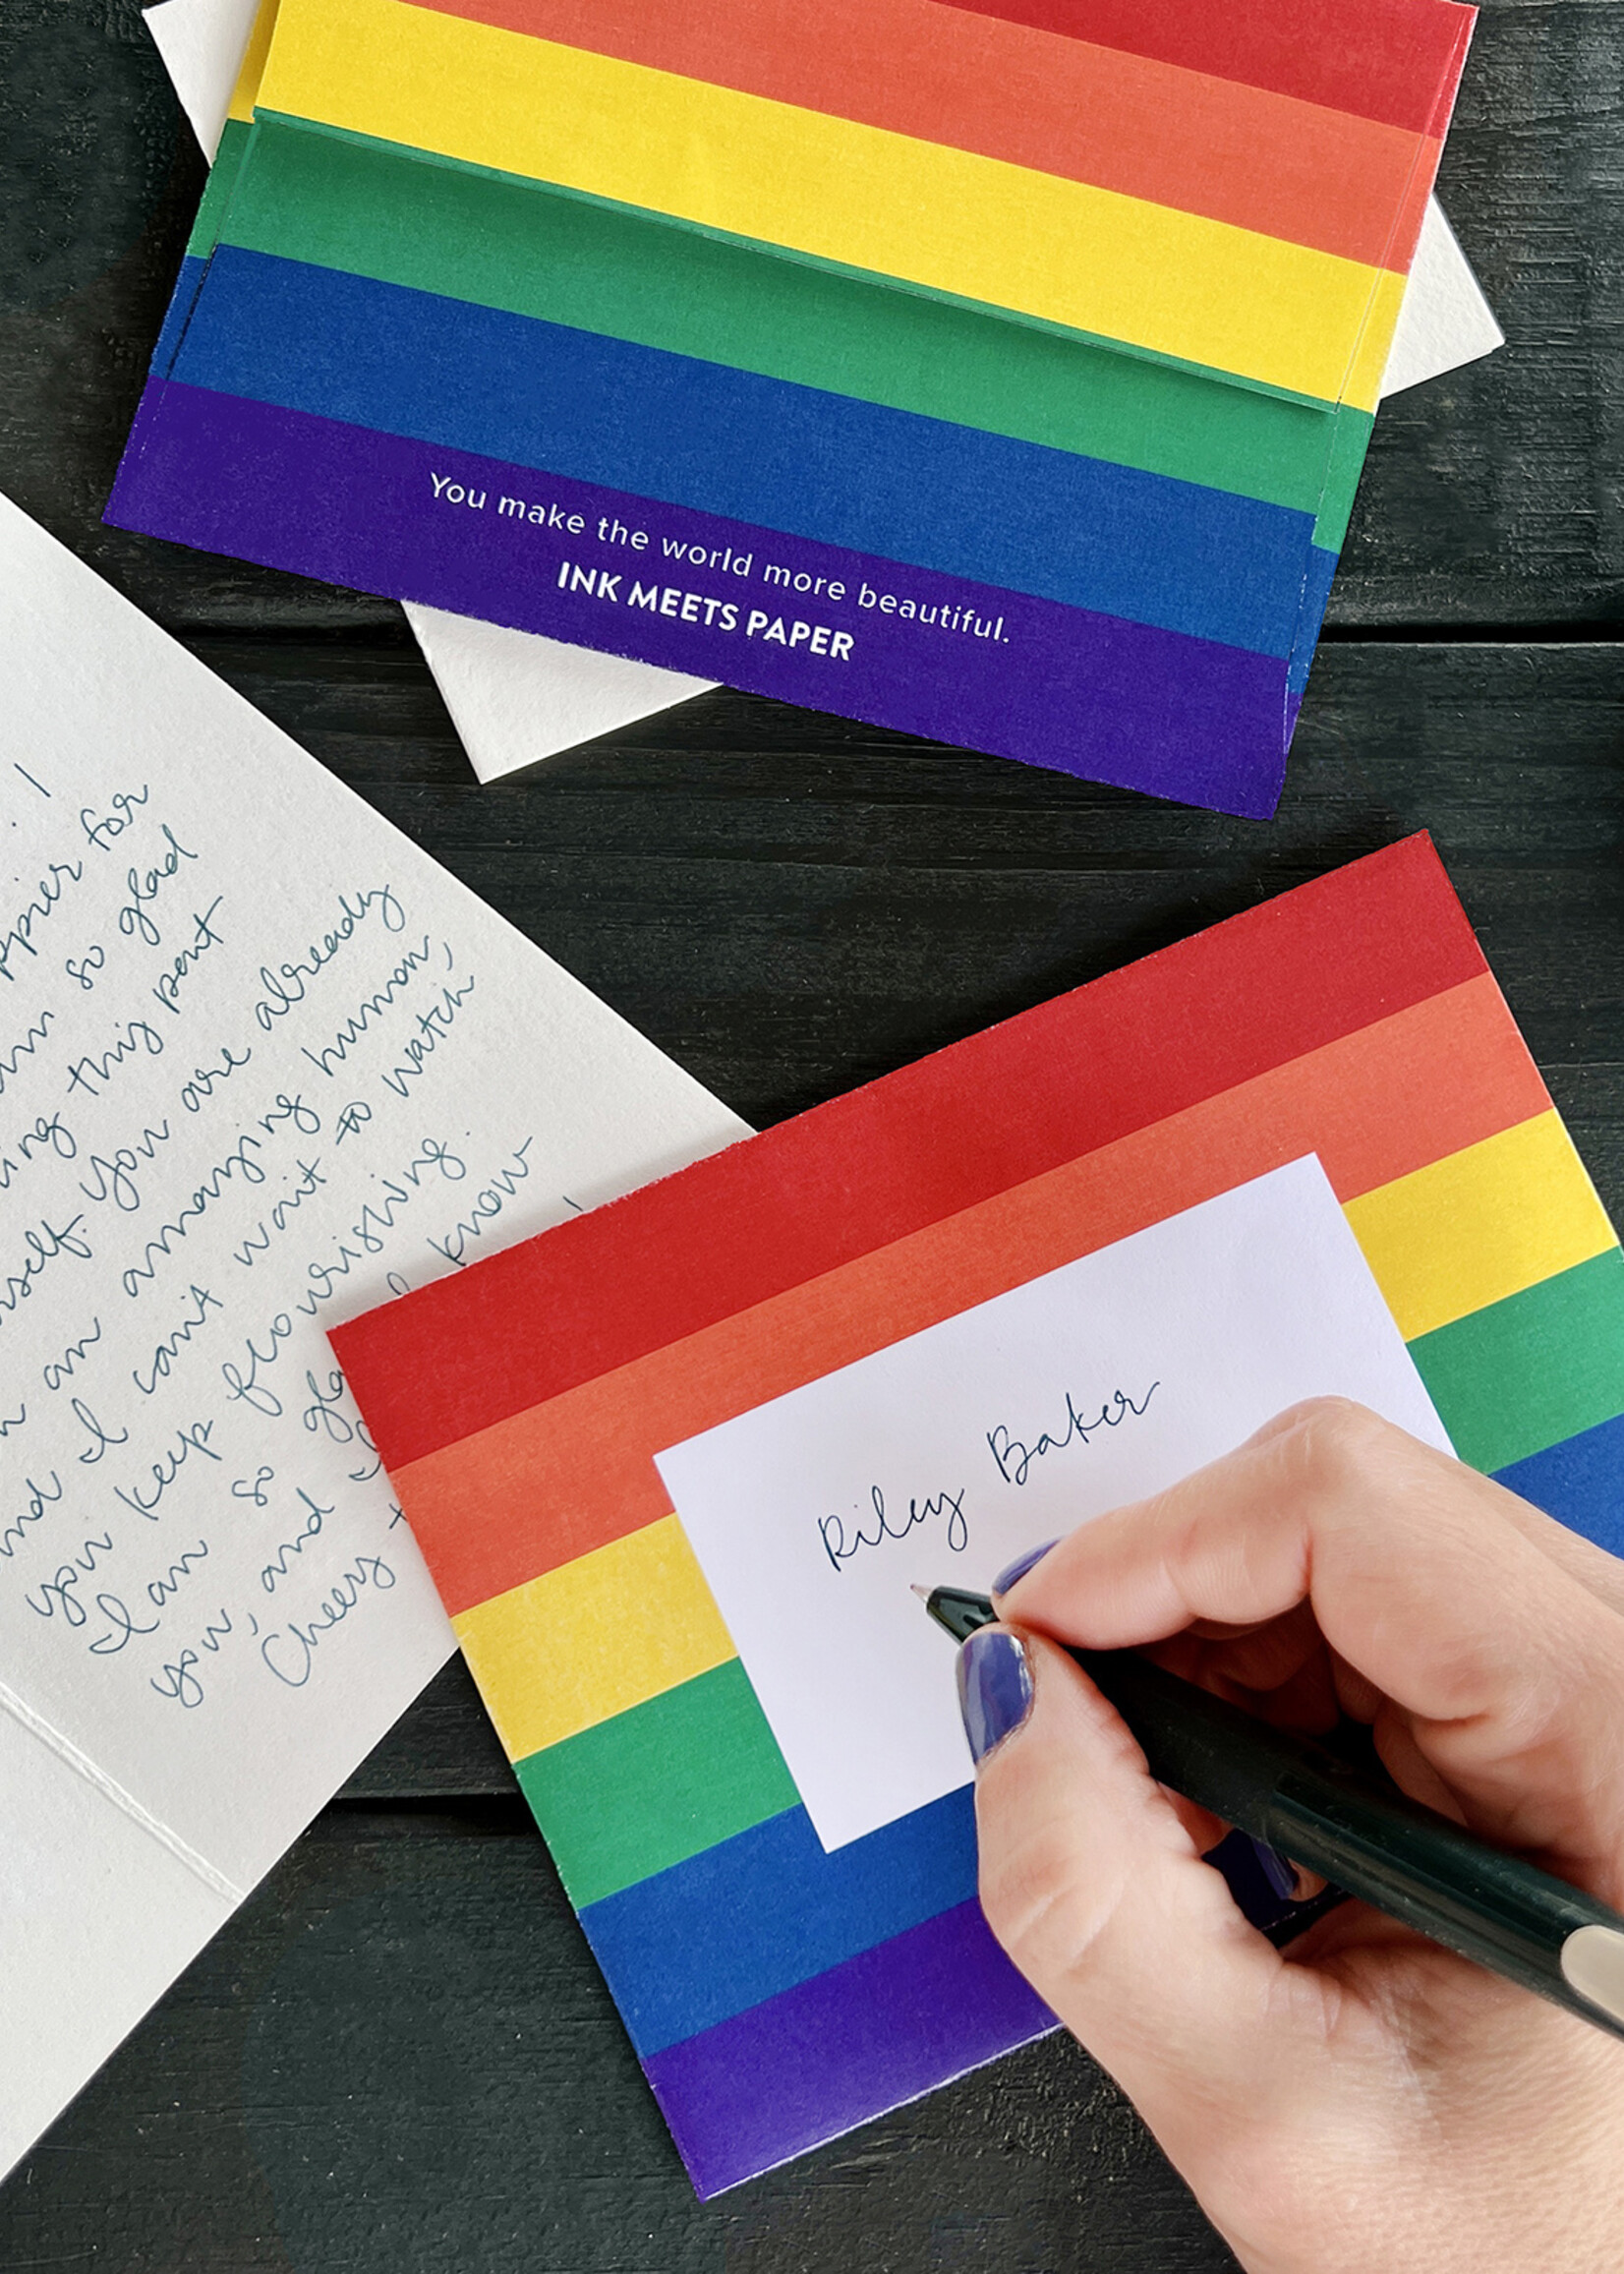 You make the world more beautiful.
INK MEETS PAPER
for
so glad
this part
You are already
an amazing human
and I can't wait to watch
you keep flourishing.
I am so know
you, and
Cheers
Riley Baker